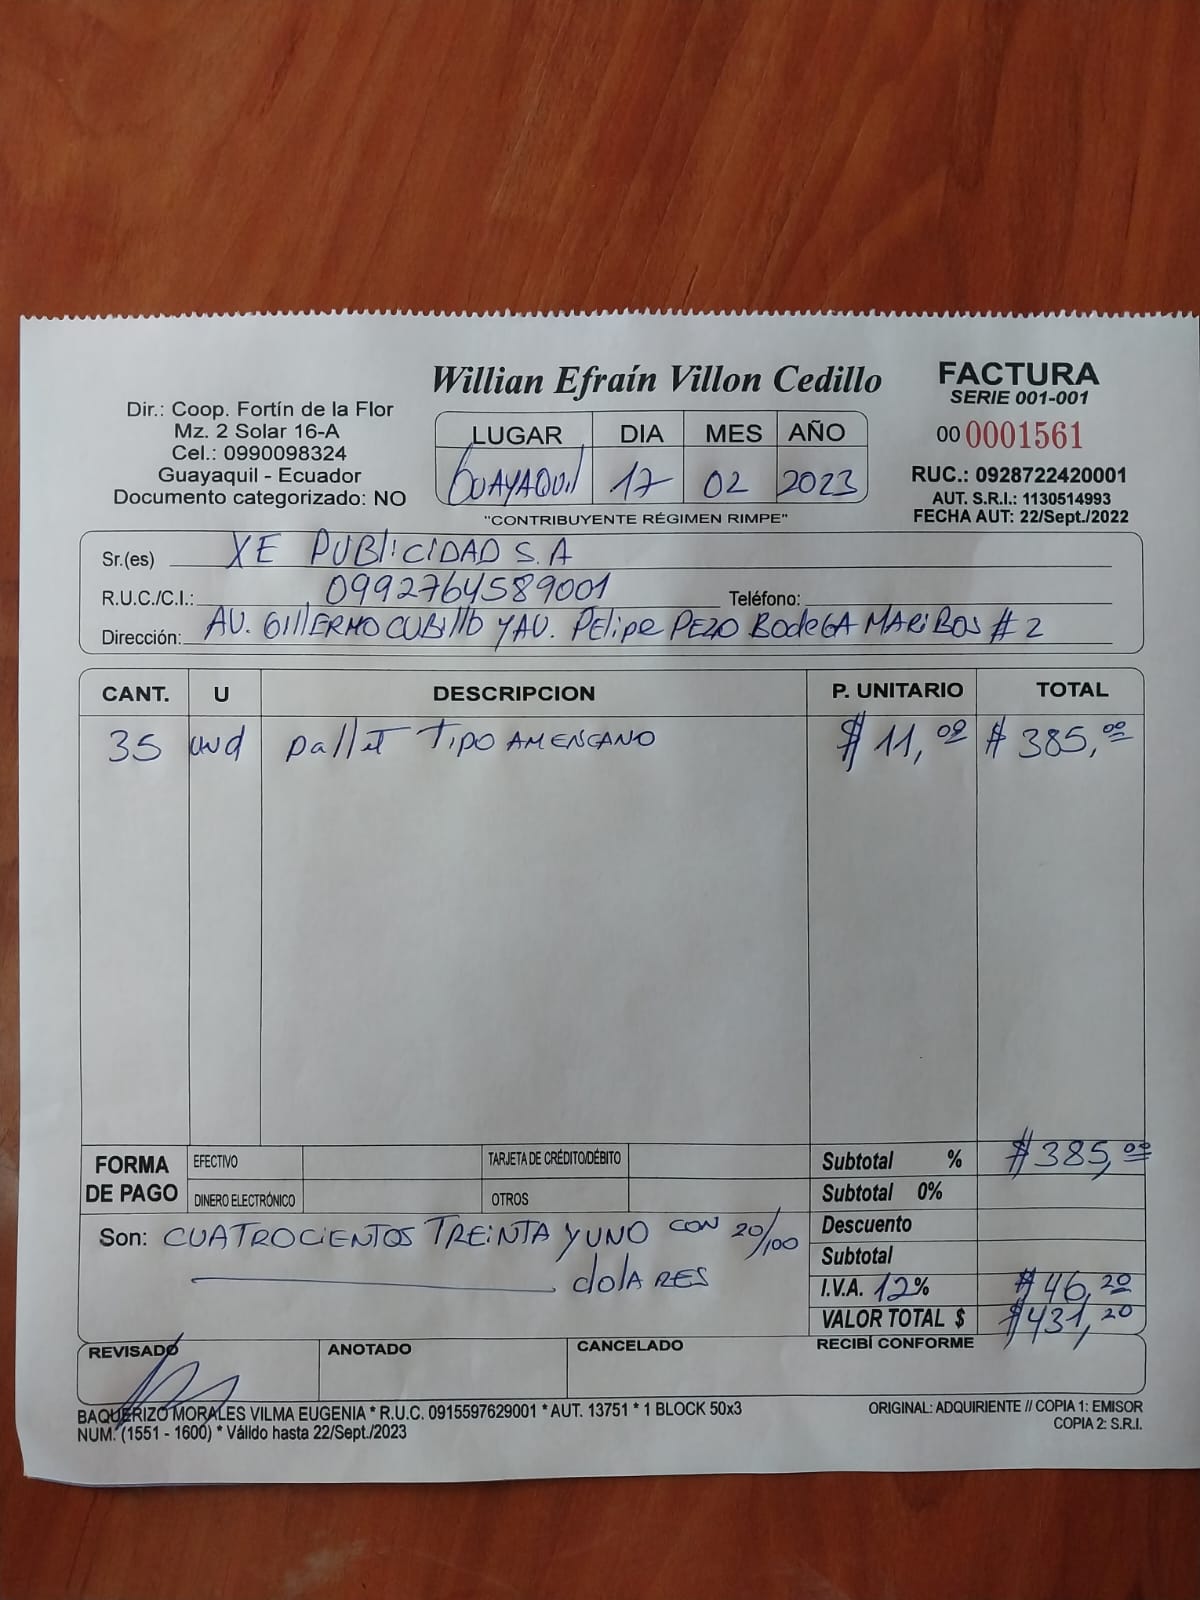 Willian Efraín Villon Cedillo
Dir.: Coop. Fortín de la Flor
Mz. 2 Solar 16-A
Cel.: 0990098324
Guayaquil - Ecuador
Documento categorizado: NO
LUGAR DIA MES AÑO
GUAYAQUIL 17 02 2023
"CONTRIBUYENTE RÉGIMEN RIMPE"
FACTURA
SERIE 001-001
00 0001561
RUC.: 0928722420001
AUT. S.R.I.: 1130514993
FECHA AUT: 22/Sept./2022
Sr.(es) XE PUBLICIDAD S.A
R.U.C./C.I.: 0992764589001 Teléfono:
Dirección: AV. GUILLERMO CUBILLO Y AV. FELIPE PEZO BODEGA MARIBOS # 2
CANT. U DESCRIPCION P. UNITARIO TOTAL
35 und pallet TIPO AMERICANO $ 11,00 $ 385,00
FORMA DE PAGO
EFECTIVO TARJETA DE CRÉDITO/DÉBITO
DINERO ELECTRÓNICO OTROS
Subtotal % $385,00
Subtotal 0%
Descuento
Subtotal
I.V.A. 12% $46,20
VALOR TOTAL $ $431,20
Son: CUATROCIENTOS TREINTA Y UNO CON 20/100
dolARES
REVISADO ANOTADO CANCELADO RECIBÍ CONFORME
BAQUERIZO MORALES VILMA EUGENIA * R.U.C. 0915597629001 * AUT. 13751 * 1 BLOCK 50x3
NUM. (1551 - 1600) * Válido hasta 22/Sept./2023
ORIGINAL: ADQUIRIENTE // COPIA 1: EMISOR
COPIA 2: S.R.I.